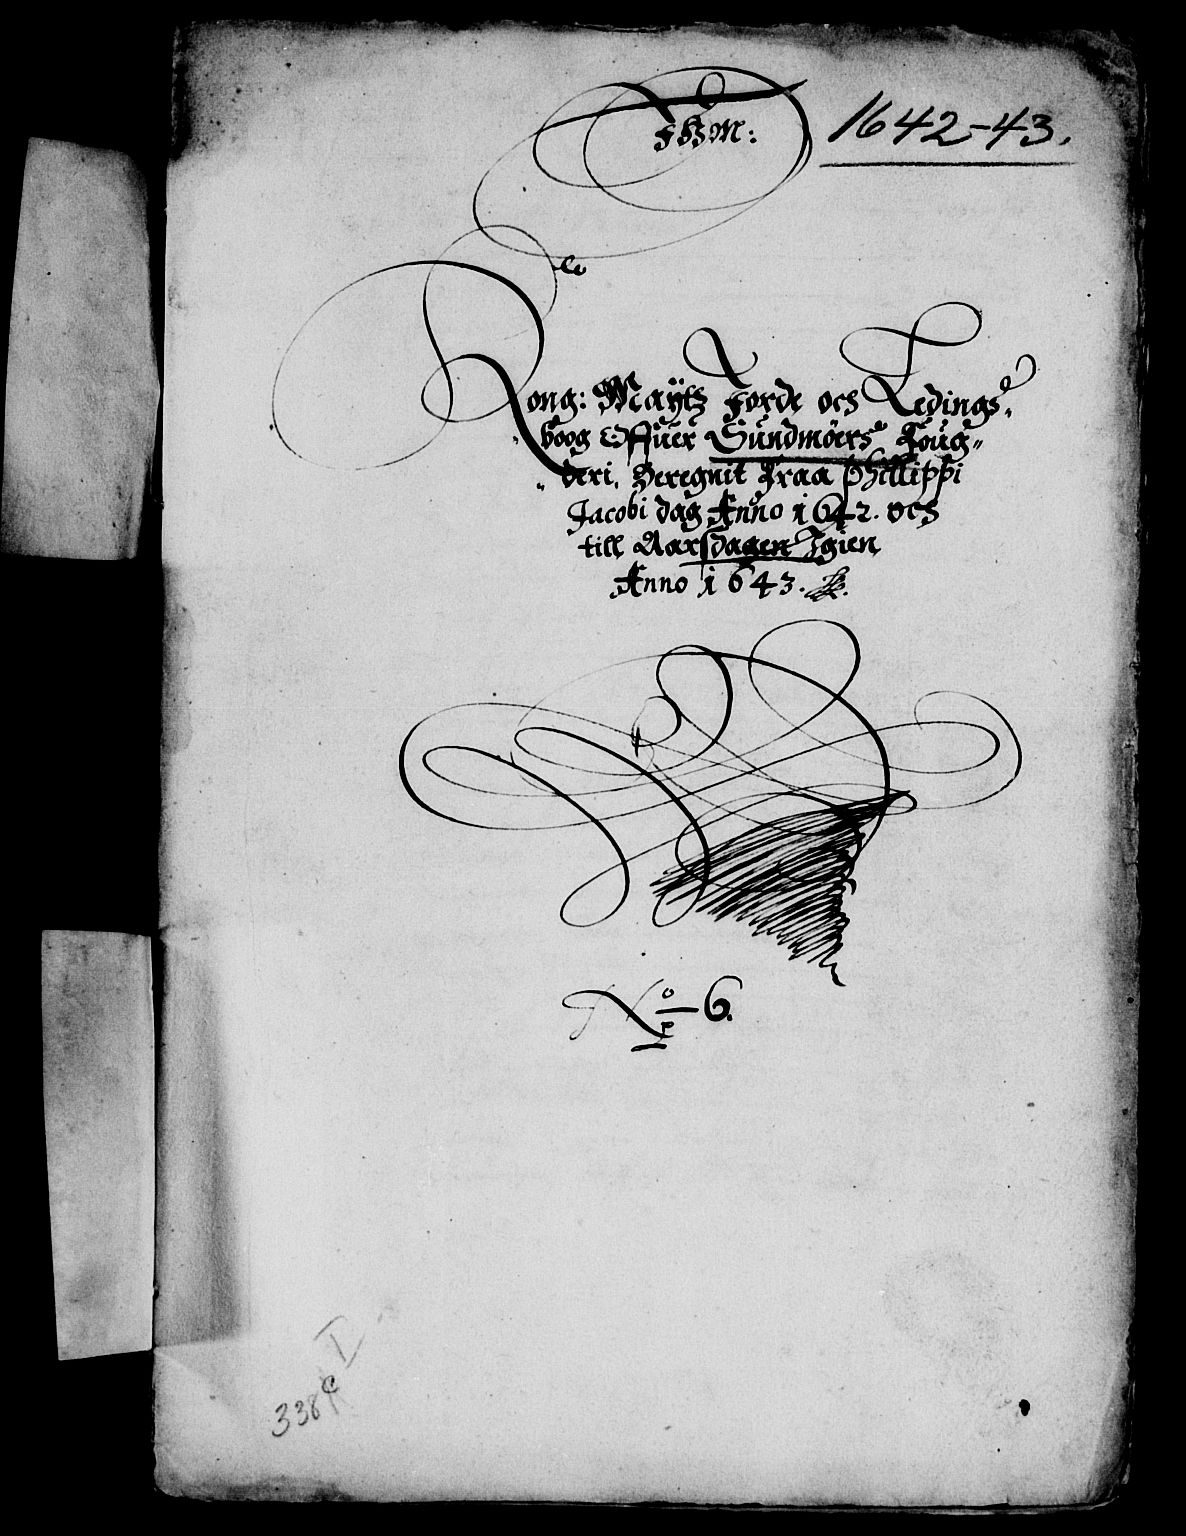 FHM:
1642-43.
Kong: Maÿtz Jorde och Ledings
boog Offuer Sundmöers Foug-
deri. Beregnit Fraa Phillippi
Jacobi dag Anno 1642. och
till Aarsdagen Igien
Anno 1643.
No 6.
I
338